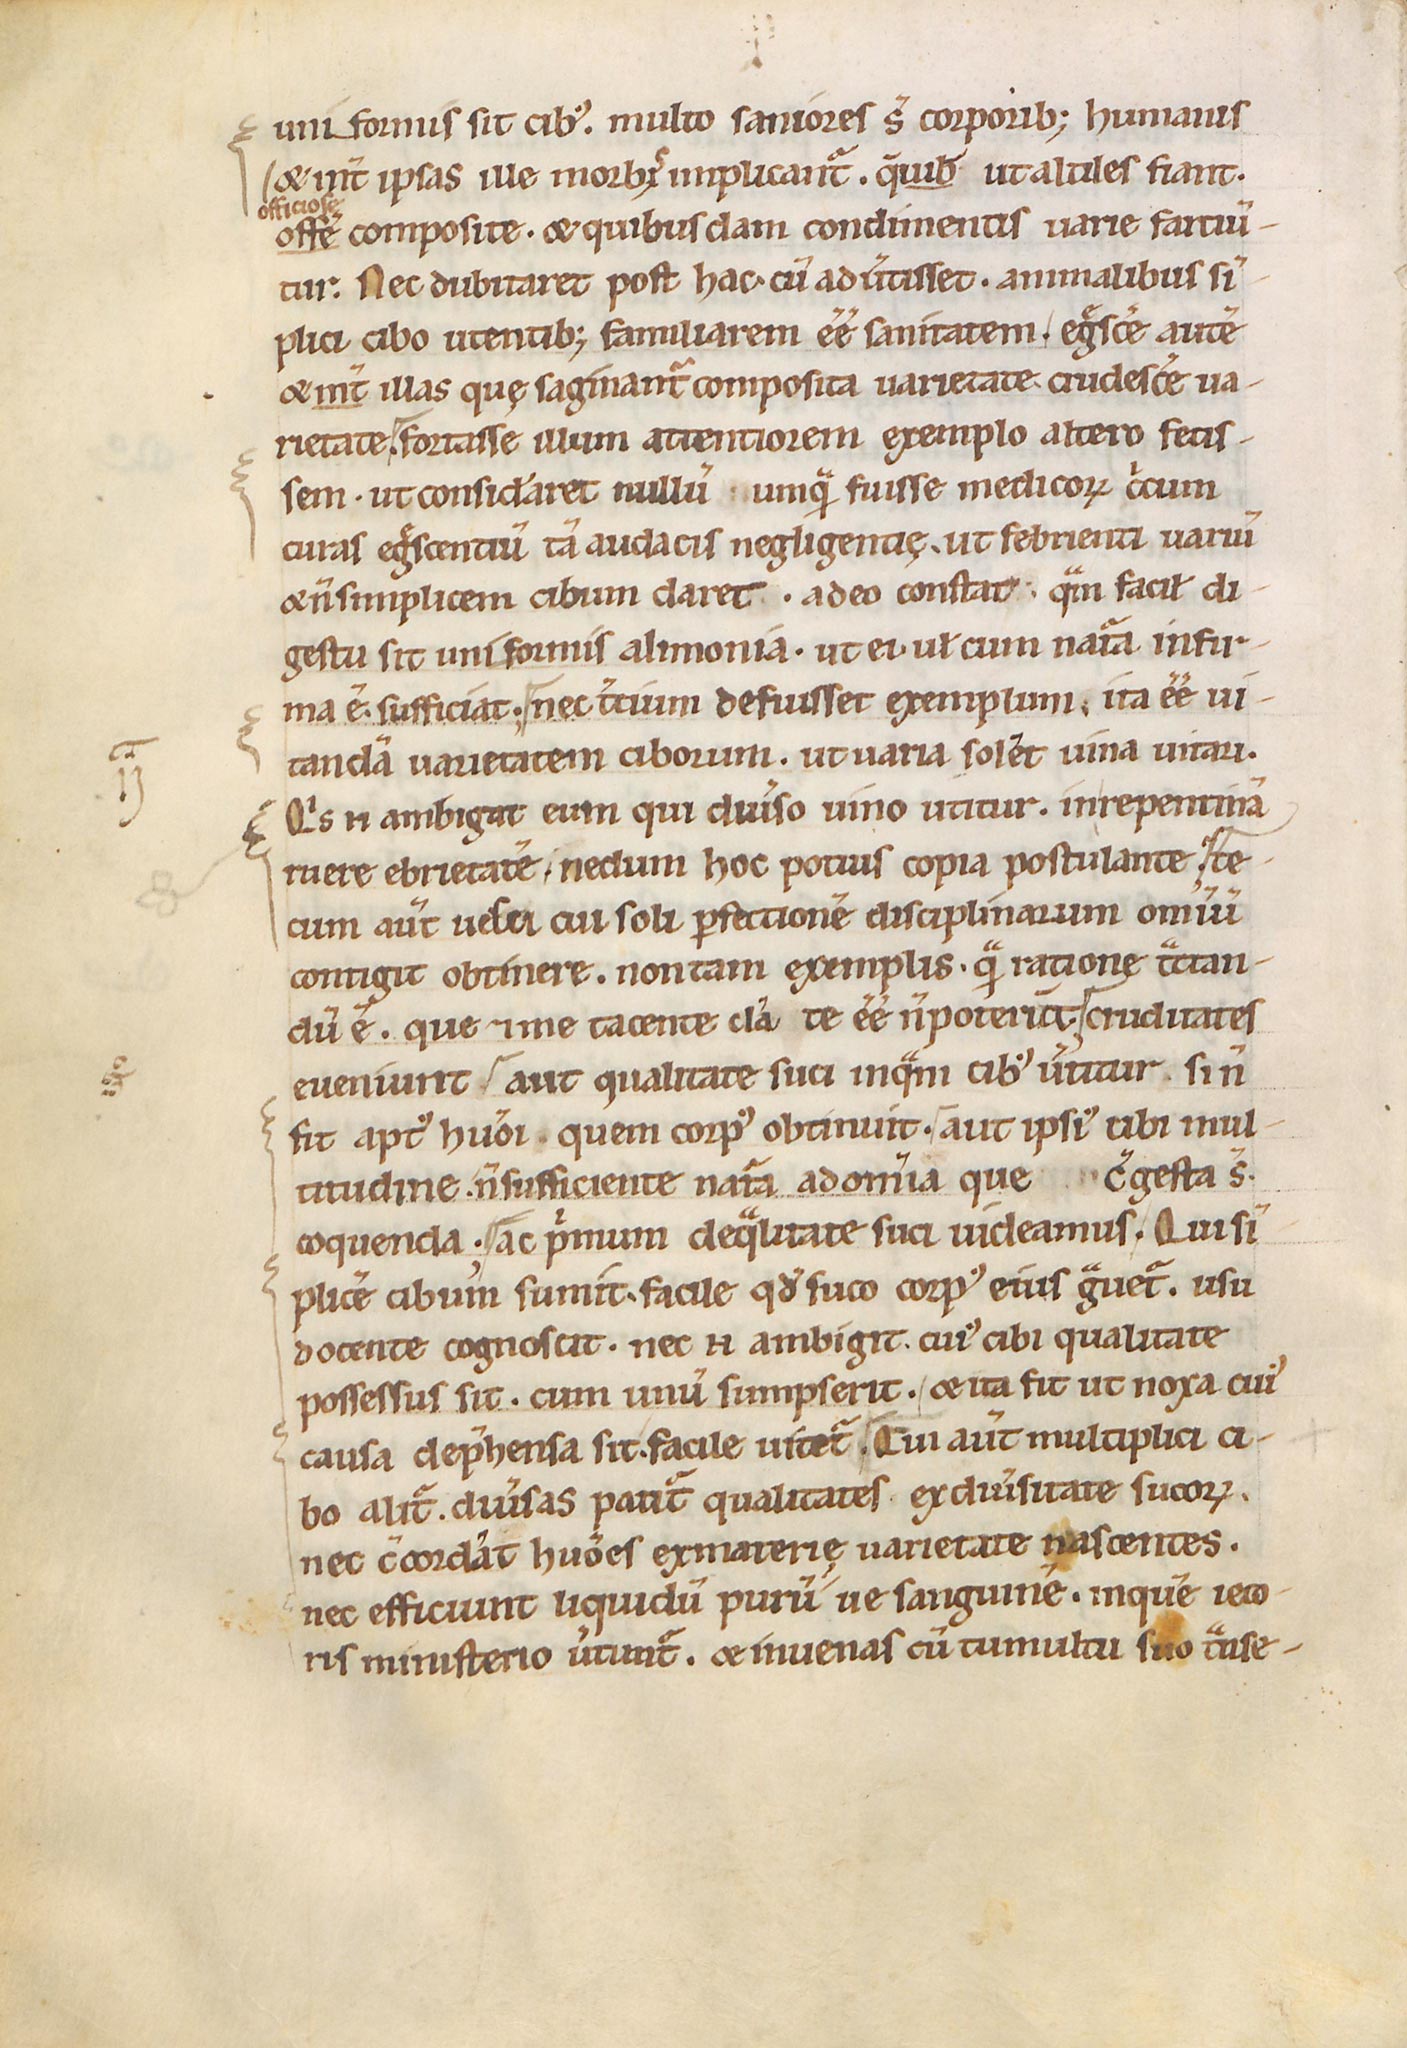 uniformis sit cib᾽. multo saniores s̄ corporib; humanis
& int̄ ipsas ille morbis implicant᷑. q̄uib; ut altiles fiant.
officiose
offe̅ composite. & quibusdam condimentis uarie farciu̅-
tur. Nec dubitaret post hac. cu̅ adu̅tisset. animalibus si̅-
plici cibo utentib; familiarem e̅e̅ sanitatem. egͣsce̅ aute̅
& int̄ illas quę saginant᷑ composita uarietate crudesce̅ ua-
rietate. fortasse illum attentiorem exemplo altero fecis-
sem. ut consid̅aret nullu̅ umqͣ fuisse medicoꝝ c̅cum
curas egͣscentiu̅ ta̅ audacis negligentię. ut febrienti uariu̅
& n̅ simplicem cibum daret. adeo constat. qͣm facil̅ di-
gestu sit uniformis alimonia. ut ei. ul̅ cum nat̅a infir-
ma e̅. sufficiat. nec t̅cium defuisset exemplum. ita e̅e̅ ui-
tanda̅ uarietatem ciborum. ut uaria sole̅t uina uitari.
Qͥs n̅ ambigat eum qui diu̅so uino utitur. in repentina̅
ruere ebrietate̅. nedum hoc potius copia postulante. te-
cum aut̅ uebei cui soli ꝑfectione̅ disciplinarum omiu̅
contigit obtinere. non tam exemplis. qͣ ratione t̅ctan-
du̅ e̅. que me tacente cla̅ te e̅e̅ n̅ poterit. cruditates
eueniunt aut qualitate suci inqͣm cib᾽ u̅titur. si n̅
fit apt᾽ huo̅i. quem corp᾽ obtinuit. aut ipsi᾽ cibi mul-
titudine. n̅ sufficiente nat̅a ad omia que c̅gesta s̅.
coquenda. ac pͥmum de qͣlitate suci uideamus. Qui si̅-
plice̅ cibum sumit. facile qd̅ suco corp᾽ eius gͣuet᷑. usu
docente cognoscit. nec n̅ ambigit. cui᾽ cibi qualitate
possessus sit. cum unu̅ sumpserit. & ita fit ut noxa cui᾽
causa dep̅hensa sit. facile uitet᷑. Qui aut̅ multiplici ci-
bo alit᷑. diu̅sas patit᷑ qualitates ex diu̅sitate sucoꝝ.
nec c̅corda̅t huo̅es ex materię uarietate nascentes.
nec efficiunt liquidu̅ puru̅ ue sanguine̅. in que̅ ieco-
ris ministerio u̅tunt᷑. & in uenas cu̅ tumultu suo tͣnse-